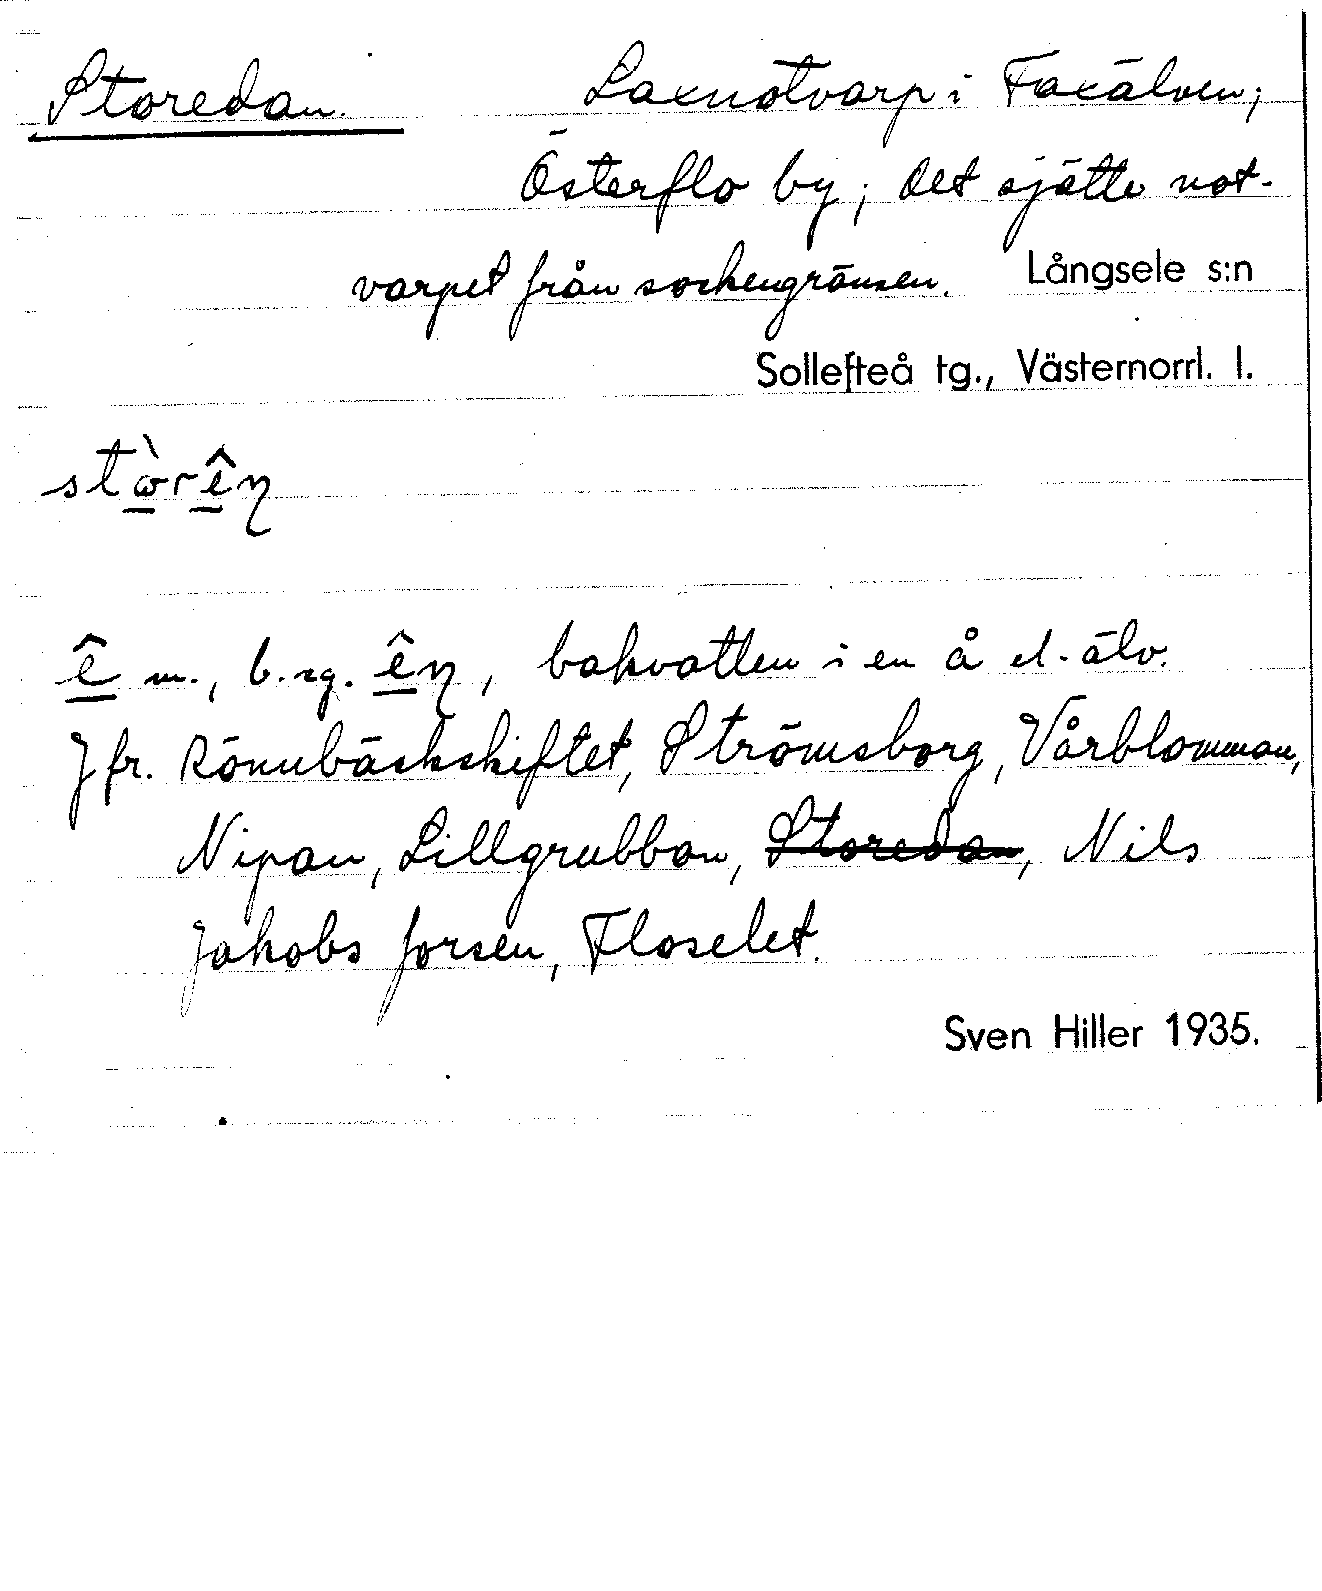 Storedan. Laxnotvarp i Faxälven;
Österflo by; det sjätte not-
varpet från sockengränsen. Långsele s:n
Sollefteå tg., Västernorrl. l.
stò̱rê̱n
ê̱ m., b.sg. ê̱n, bakvatten i en å el. älv.
Jfr. Rönnbäckskiftet, Strömsborg, Vårblomman,
Nipan, Lillgrubban, Storedan, Nils
Jakobs forsen, Floselet.
Sven Hiller 1935.